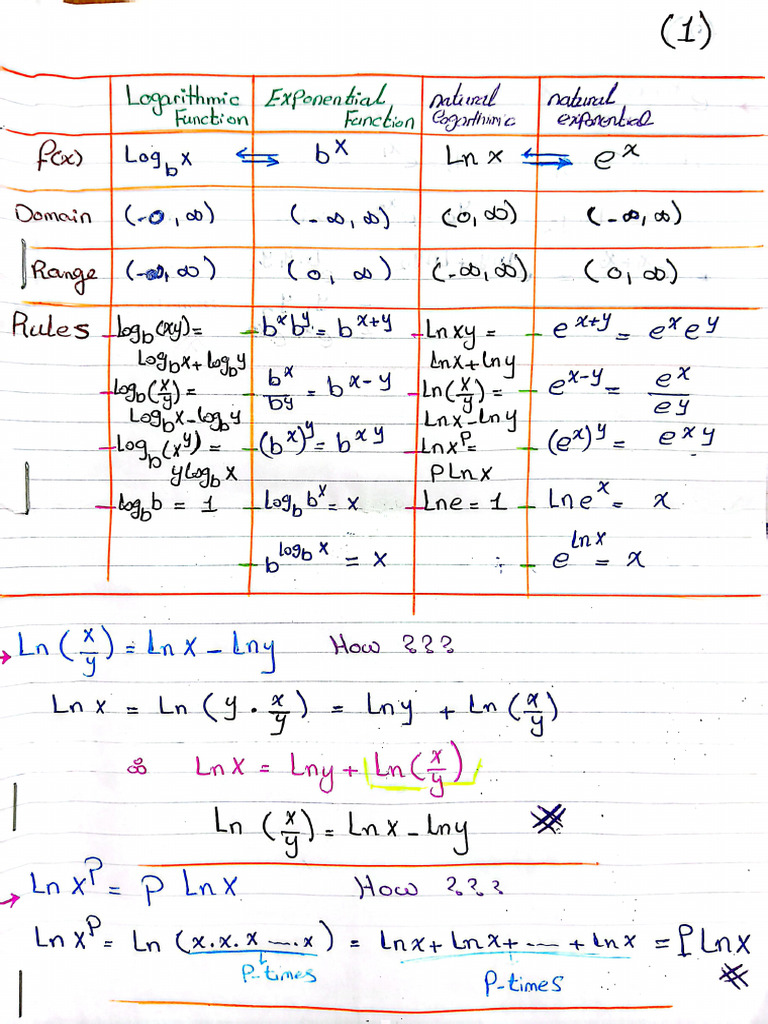 (1)
Logarithmic Function Exponential Function natural Logarithmic natural exponential
f(x) Log_b x ⇔ b^x Ln x ⇔ e^x
Domain (-0, ∞) (-∞, ∞) (0, ∞) (-∞, ∞)
Range (-∞, ∞) (0, ∞) (-∞, ∞) (0, ∞)
Rules – log_b(xy) = – b^x b^y = b^{x+y} – Ln xy = – e^{x+y} = e^x e^y
Log_b x + log_b y Ln x + ln y
– log_b(x/y) = – b^x/b^y = b^{x-y} – Ln(x/y) = – e^{x-y} = e^x/e^y
Log_b x - log_b y Ln x - ln y
– log_b(x^y) = – (b^x)^y = b^{xy} – Ln x^P = – (e^x)^y = e^{xy}
y log_b x P Ln x
– log_b b = 1 – Log_b b^x = x – Ln e = 1 – Ln e^x = x
– b^{log_b x} = x – e^{ln x} = x
→ Ln (x/y) = ln x - ln y How ???
Ln x = Ln (y · x/y) = Ln y + Ln (x/y)
∴ Ln x = Ln y + Ln (x/y)
Ln (x/y) = Ln x - Ln y
→ Ln x^P = P Ln x How ???
Ln x^P = Ln (x.x.x ---. x) = Ln x + Ln x + --- + Ln x = P Ln x
P-times P-times